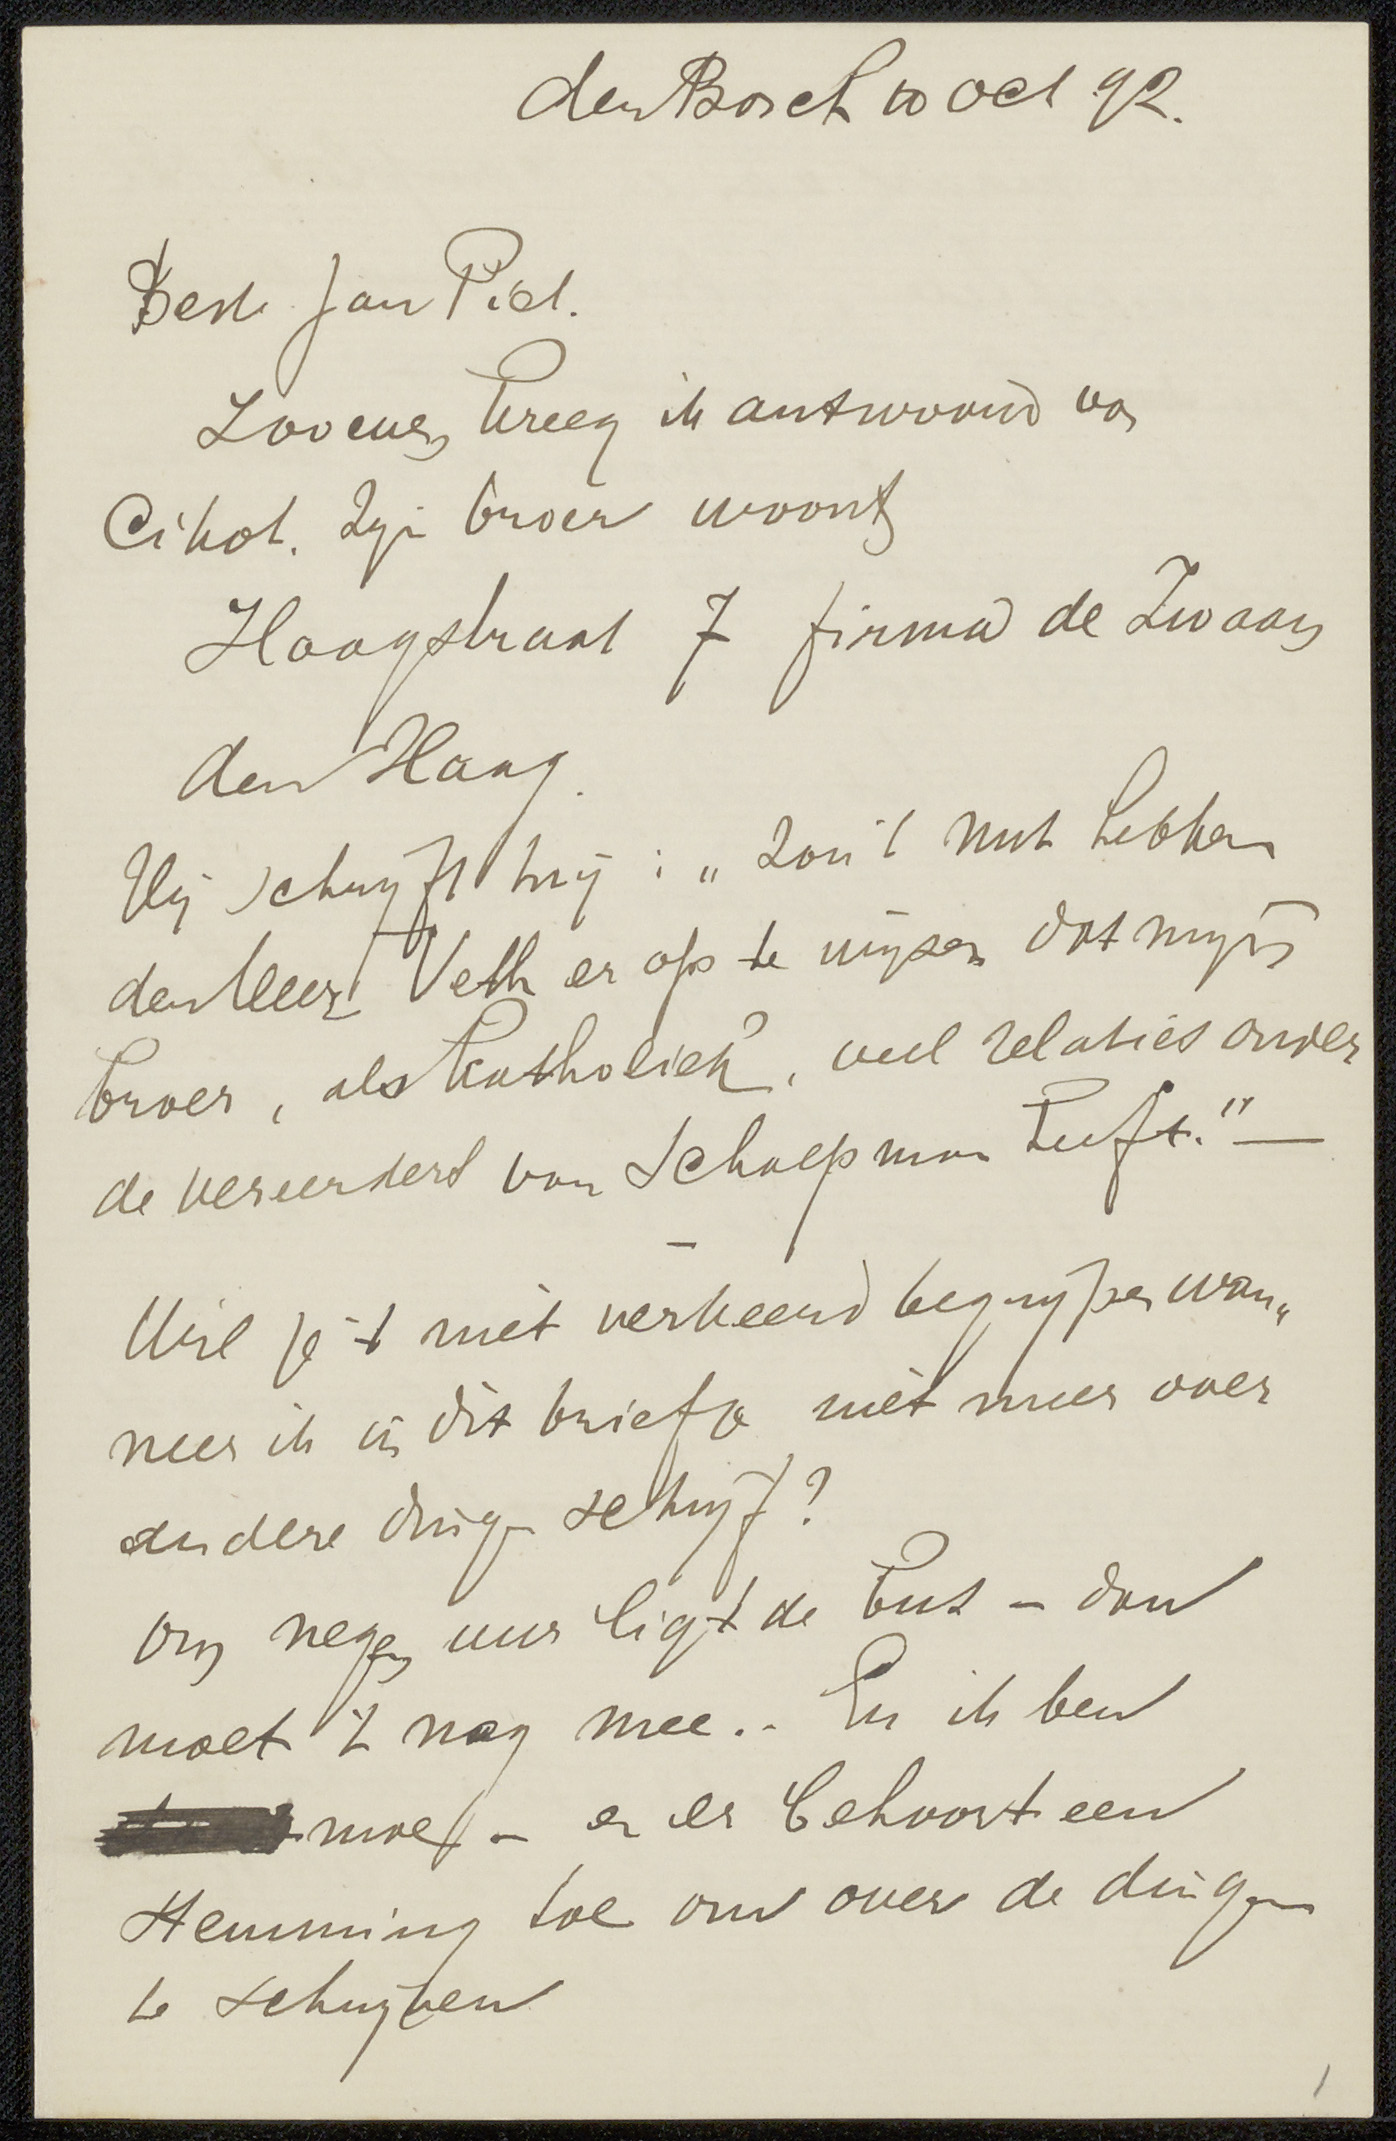 den Bosch 10 Oct 92.
Beste Jan Piet.
Zooeven kreeg ik antwoord van
Cikot. Zijn broer woont
Hoogstraat 7 firma de Zwaan
den Haag.
Hij schrijft mij: „Zou 't nut hebben
den Heer Veth er op te wijzen dat mijn
broer, als Katholiek, veel relaties onder
de vereerders van Schaepman heeft."—
Wil je 't niet verkeerd begrijpen wan„
neer ik in dit briefje niet meer over
andere dingen schrijf?
om negen uur ligt de bus – dan
moet 't nog mee.. En ik ben
moe – en er behoort een
stemming toe om over de dingen
te schrijven
1